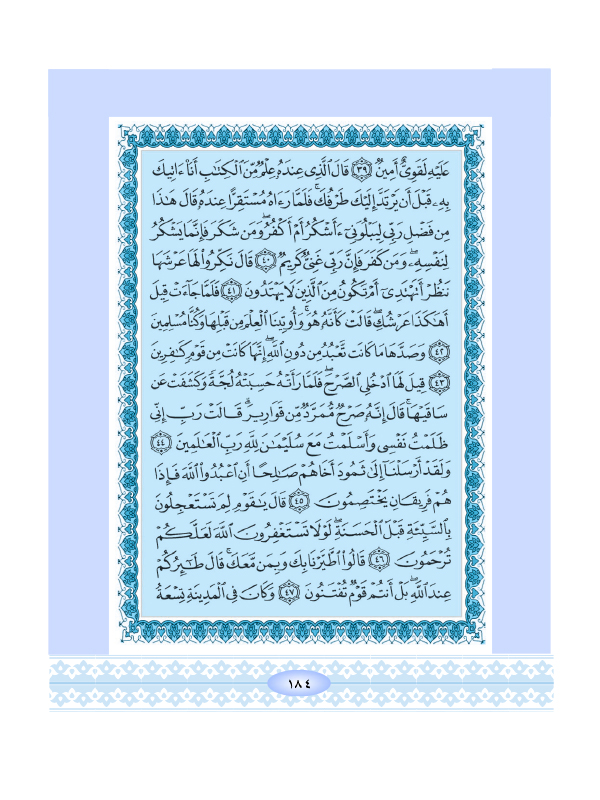 عَلَيْهِ لَقَوِىٌّ أَمِينٌ ﴿٣٩﴾ قَالَ ٱلَّذِى عِندَهُۥ عِلْمٌ مِّنَ ٱلْكِتَٰبِ أَنَا۠ ءَاتِيكَ
بِهِۦ قَبْلَ أَن يَرْتَدَّ إِلَيْكَ طَرْفُكَ ۚ فَلَمَّا رَءَاهُ مُسْتَقِرًّا عِندَهُۥ قَالَ هَٰذَا
مِن فَضْلِ رَبِّى لِيَبْلُوَنِىٓ ءَأَشْكُرُ أَمْ أَكْفُرُ ۖ وَمَن شَكَرَ فَإِنَّمَا يَشْكُرُ
لِنَفْسِهِۦ ۖ وَمَن كَفَرَ فَإِنَّ رَبِّى غَنِىٌّ كَرِيمٌ ﴿٤٠﴾ قَالَ نَكِّرُوا۟ لَهَا عَرْشَهَا
نَنظُرْ أَتَهْتَدِىٓ أَمْ تَكُونُ مِنَ ٱلَّذِينَ لَا يَهْتَدُونَ ﴿٤١﴾ فَلَمَّا جَآءَتْ قِيلَ
أَهَٰكَذَا عَرْشُكِ ۖ قَالَتْ كَأَنَّهُۥ هُوَ ۚ وَأُوتِينَا ٱلْعِلْمَ مِن قَبْلِهَا وَكُنَّا مُسْلِمِينَ
﴿٤٢﴾ وَصَدَّهَا مَا كَانَت تَّعْبُدُ مِن دُونِ ٱللَّهِ ۖ إِنَّهَا كَانَتْ مِن قَوْمٍ كَٰفِرِينَ
﴿٤٣﴾ قِيلَ لَهَا ٱدْخُلِى ٱلصَّرْحَ ۖ فَلَمَّا رَأَتْهُ حَسِبَتْهُ لُجَّةً وَكَشَفَتْ عَن
سَاقَيْهَا ۚ قَالَ إِنَّهُۥ صَرْحٌ مُّمَرَّدٌ مِّن قَوَارِيرَ ۗ قَالَتْ رَبِّ إِنِّى
ظَلَمْتُ نَفْسِى وَأَسْلَمْتُ مَعَ سُلَيْمَٰنَ لِلَّهِ رَبِّ ٱلْعَٰلَمِينَ ﴿٤٤﴾
وَلَقَدْ أَرْسَلْنَآ إِلَىٰ ثَمُودَ أَخَاهُمْ صَٰلِحًا أَنِ ٱعْبُدُوا۟ ٱللَّهَ فَإِذَا
هُمْ فَرِيقَانِ يَخْتَصِمُونَ ﴿٤٥﴾ قَالَ يَٰقَوْمِ لِمَ تَسْتَعْجِلُونَ
بِٱلسَّيِّئَةِ قَبْلَ ٱلْحَسَنَةِ ۖ لَوْلَا تَسْتَغْفِرُونَ ٱللَّهَ لَعَلَّكُمْ
تُرْحَمُونَ ﴿٤٦﴾ قَالُوا۟ ٱطَّيَّرْنَا بِكَ وَبِمَن مَّعَكَ ۚ قَالَ طَٰٓئِرُكُمْ
عِندَ ٱللَّهِ ۖ بَلْ أَنتُمْ قَوْمٌ تُفْتَنُونَ ﴿٤٧﴾ وَكَانَ فِى ٱلْمَدِينَةِ تِسْعَةُ
١٨٤